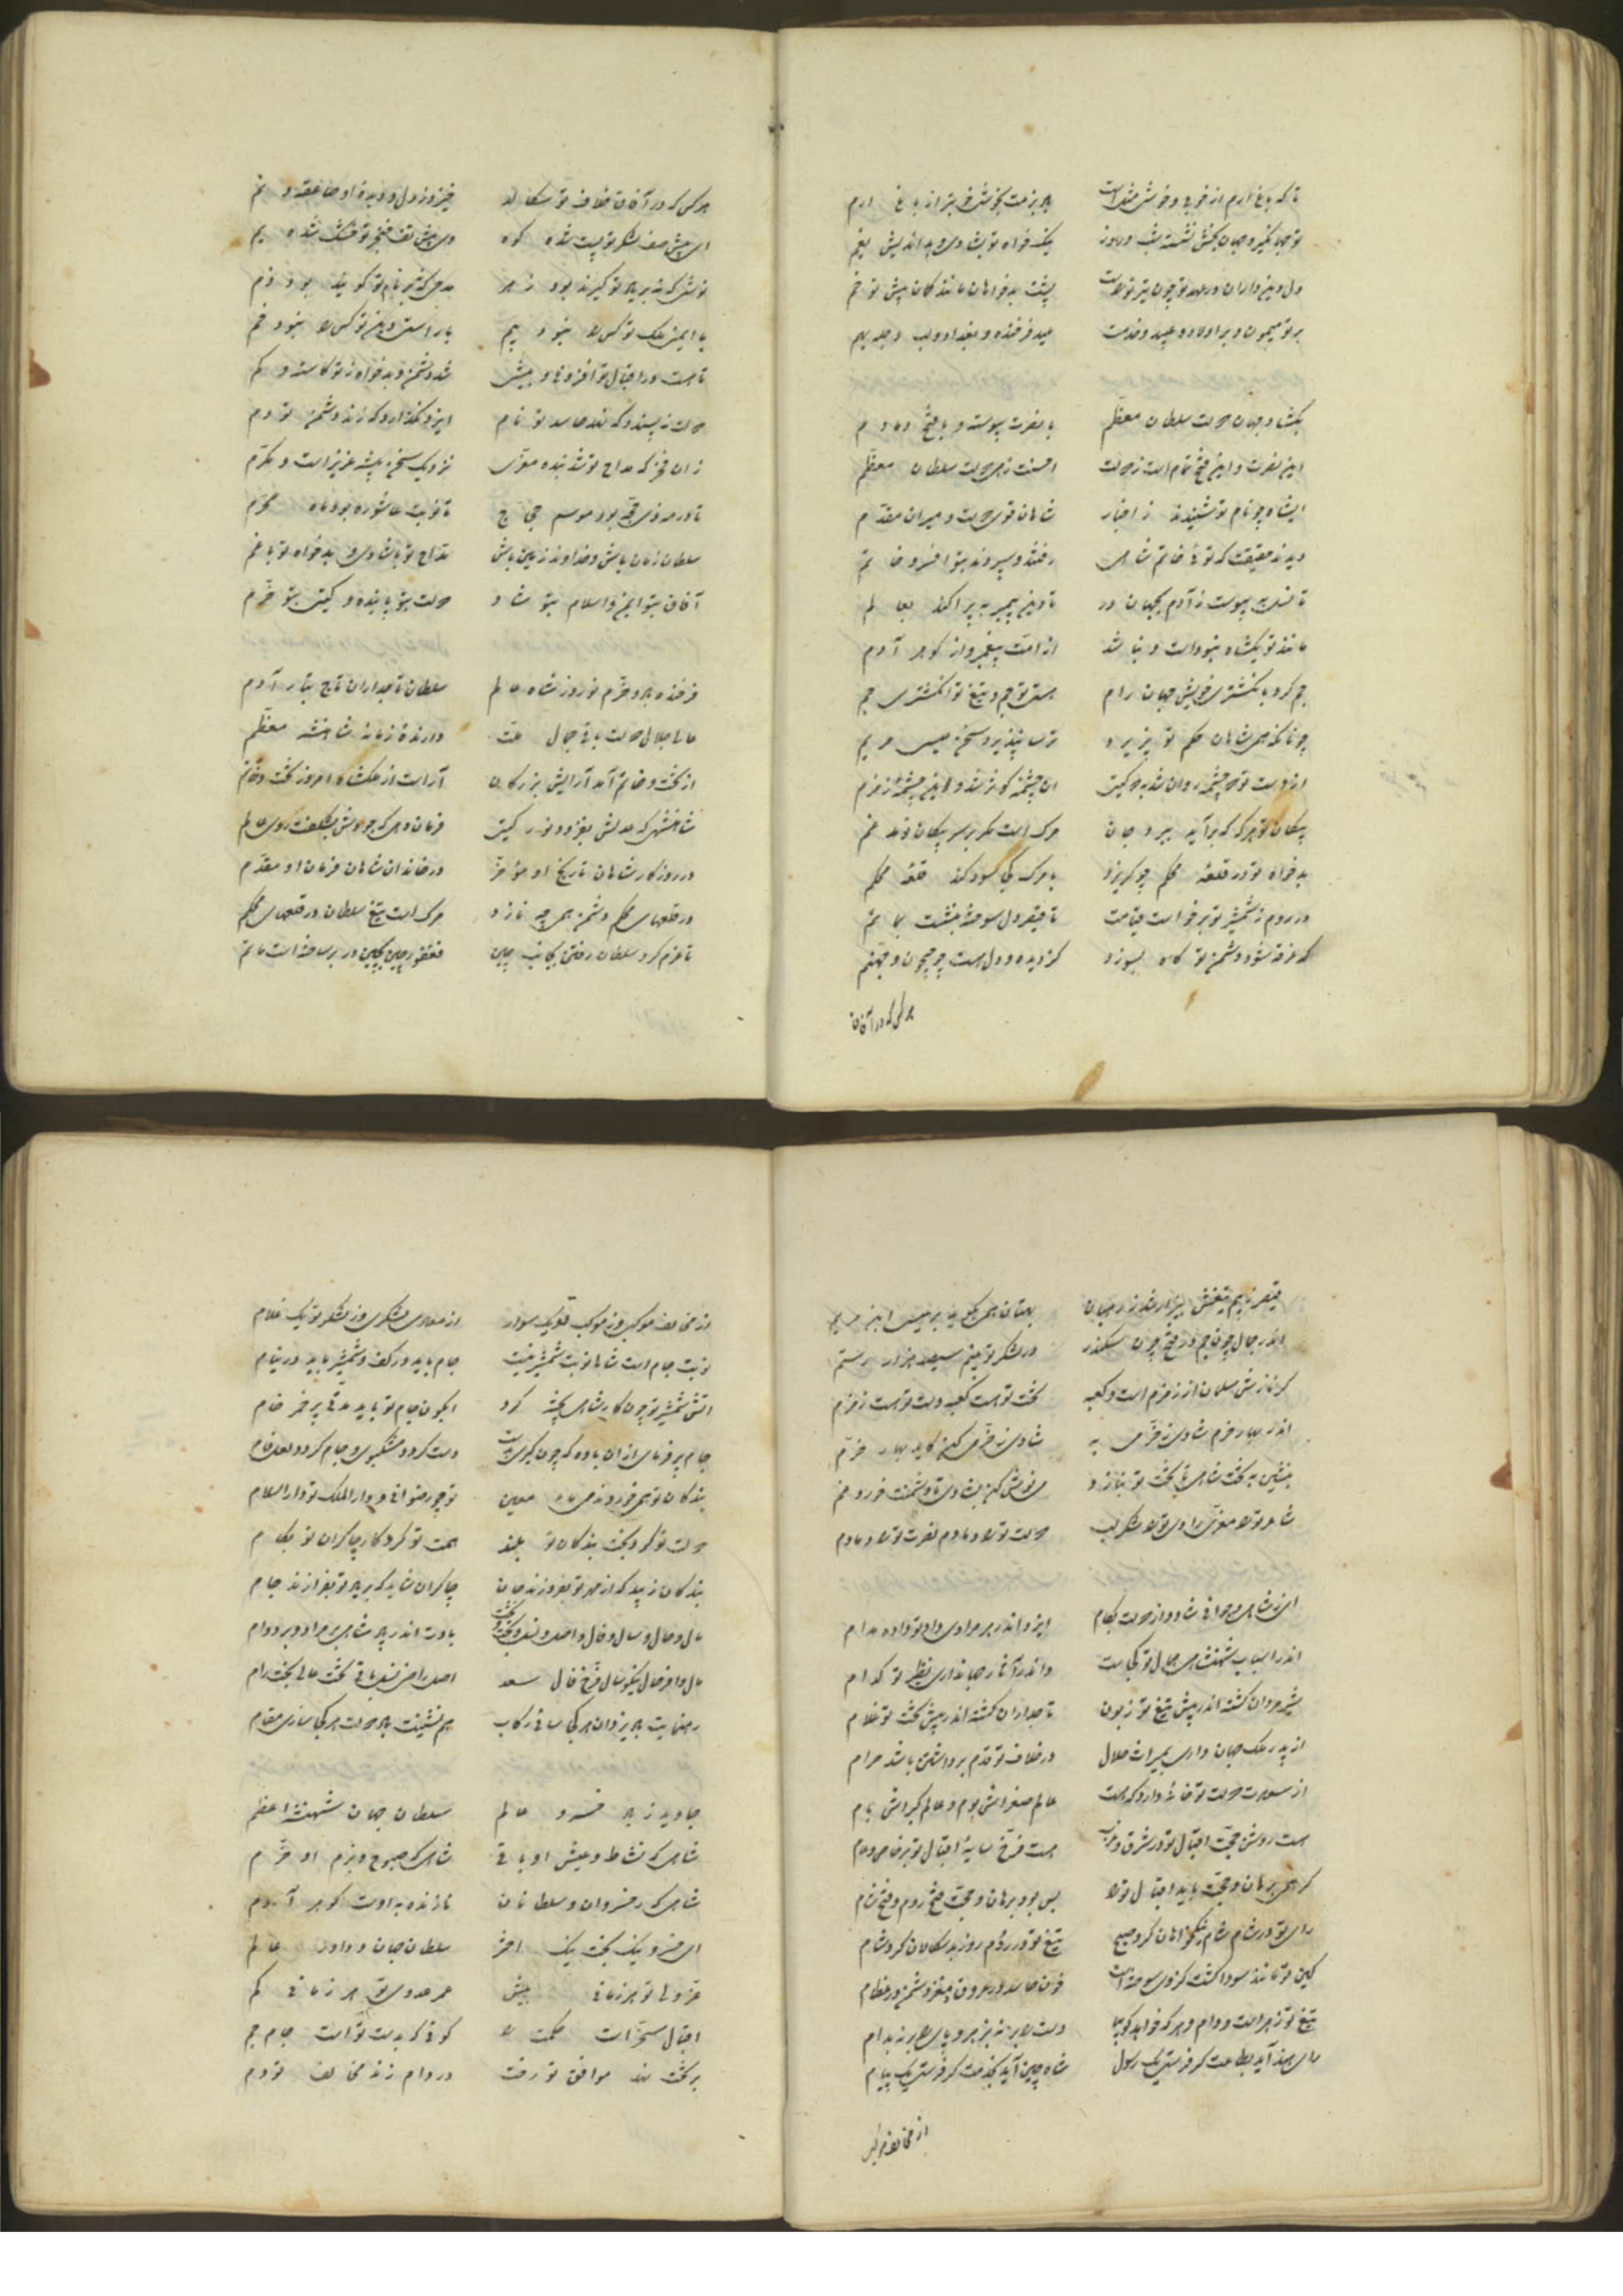 تا که باغ ارم از خوبی و خوشی مثل است بزم خوشت خوشتر از باغ ارم
تو جهانگیر و جهان بخش نشسته شب و روز نیکخواه تو بشادی و بداندیش بغم
پشت بدخواهان مانند کمان پیش تو خم
بر تو میمون و بر اولاد و عبید و خدمت عید فرخنده و بغداد و لب دجله بهم
بگشاد جهان دولت سلطان معظم با نصرت پیوسته و با فتح دمادم
این نصرت و این فتح تمام است ز دولت احسنت زهی دولت سلطان معظم
ایشاه چو نام تو شنیدند ز اخبار شاهان قوی دولت و میران مقدم
دیدند حقیقت که توئی خاتم شاهی رفتند و سپردند بتو افسر و خاتم
تا نسل پیوست ز آدم بجهان در تا دین پیمبر بپراکند بعالم
مانند تو یکشاه نبوداست و نباشد از امت پیغمبر و از گوهر آدم
جم کرد بانگشتری خویش جهان رام هستی تو جم و تیغ تو انگشتری جم
چونانکه همی شاهان حکم تو پذیرد ترسا نپذیرد سخن عیسی مریم
از دست تو دو چشمه روان شد به دو گیتی آن چشمه کوثر شد و این چشمه زمزم
پیکان تو هر گه که برآید ببرد جان مرگ است مگر بر سر پیکان تو مدغم
بدخواه تو در قلعه محکم چو گریزد با مرگ کجا سود کند قلعه محکم
در روم ز شمشیر تو برخواست قیامت تا قیصر دل سوخته بنشست بماتم
که غرقه شود دشمن تو گاه بسوزد کز دیده و دل هست چو جیحون و جهنم
هر کس که در آفاق
هر کس که در آفاق خلاف تو سگالد خیزد ز دل و دیده او صاعقه و نم
ای پیش صف لشکر تو پست شده کوه وی پیش تف خنجر تو خشک شده یم
با ایمنی ملک تو کس را نبود بیم با راستی دین تو کس را نبود خم
تا هست در اقبال تو افزونی و بیشی شد دشمن و بدخواه ز تو کاسته و کم
دولت نپسندد که نهد حاسد تو نام ایزد نگذارد که زند دشمن تو دم
زان فخر که مداح تو شد بنده معزی نزدیک سخن پیشه عزیز است و مکرم
تا نوبت عاشوره بود ماه محرم
سلطان زمان باش و خداوند زمین باش مداح تو با شادی و بدخواه تو با غم
آفاق بتو ایمن و اسلام بتو شاد دولت بتو پاینده و گیتی بتو خرم
فرخنده باد و خرم نوروز شاه عالم سلطان تاجداران تاج تبار آدم
عالی جلال دولت باقی جمال ملت دارنده زمانه شاهنشه معظم
از تخت و خاتم آمد آرایش بزرگان آراست از ملکشاه امروز تخت و خاتم
شاهنشهی که عدلش بفزود نور گیتی فرمان دهی که جودش بشکفت روی عالم
در روزگار شاهان تاریخ او مؤخر در خاندان شاهان فرمان او مقدم
در قلعهای محکم دشمن همی چه نازد مرگ است تیغ سلطان در قلعهای محکم
تا عزم کرد سلطان رفتن بجانب چین فغفور چین بچین در برساخته است ماتم
قیصر ز بیم تیغش بیزار شد ز رهبان بهتان همی بگوید بر عیسی ابن مریم
اندر جمال چون جم در فتح چون سکندر در لشکر تو بینم سیصد هزار رستم
گر نازش مسلمان از زمزم است و کعبه تخت تو هست کعبه دست تو هست زمزم
اندر بهار خرم شادی ز خرمی به شادی ز خرمی کن کاید بهار خرم
بنشین به تخت شاهی تا تخت تو بنازد می نوش کن بشادی تا دشمنت خورد غم
شاعر ترا معزی راوی ترا شکر لب دولت ترا دمادم نصرت ترا دمادم
ای ز شاهی و جوانی شاد و از دولت بکام ایزد اندر هر مرادی داد تو داده مدام
اندر اسباب شهنشاهی همال تو کجاست واندر آثار جهانداری نظیر تو کدام
شیرمردان گشته اندر پیش تیغ تو زبون تاجداران گشته اندر پیش تخت تو غلام
از پدر ملک جهان داری بمیراث حلال در خلاف تو قدم برداشتن باشد حرام
از سعادت دولت تو خانه دارد که هست عالم صغراش بوم و عالم کبراش بام
هست روشن حجت اقبال تو در شرق و غرب هست فرخ سایه اقبال تو بر خاص و عام
گر همی برهان و حجت باید اقبال ترا بس بود برهان و حجت فتح روم و فتح شام
رای تو در شام شام نیکخواهان کرد صبح تیغ تو در روم روز بدسگالان کرد شام
کین تو مانند سودا گشت کز وی سوخته است خون حاسد در عروق و مغز دشمن در عظام
رای هند آید بطاعت گر فرستی یک رسول شاه چین آید بخدمت گر فرستی یک پیام
از مخالف موکبی
از مخالف موکبی وز موکب تو یک سوار از معادی لشکری وز لشکر تو یک غلام
نوبت جام است شاها نوبت شمشیر نیست جام باید در کف و شمشیر باید در نیام
آتش شمشیر تو چون کار شاهی پخته کرد
جام پر فرمای از ان باده که چون گیری بدست دست گردد مشکبوی و جام گردد لعل فام
بندگان تو همی خوردند می ماء معین تو چو رضوانی و دارالملک تو دارالسلام
دولت تو کرد بخت بندگان تو بلند همت تو کرد کار چاکران تو بکام
بندگان زیبد که از مهر تو بفروزند جان چاکران شاید که بر یاد تو بفرازند جام
مال و حال و سال و فال و اصل و نسل و بخت و تخت بادت اندر پادشاهی بر مراد و بر دوام
مال وافر حال نیکو سال فرخ فال سعد اصل راضی نسل باقی تخت عالی بخت رام
رهنمایت باد یزدان هر کجا سائی رکاب هم نشینت باد دولت هر کجا سازی مقام
جاوید زیاد خسرو عالم سلطان جهان شهنشه اعظم
شاهی که نشاط و عیش او باقی شاهی که صبوح و بزم او خرم
شاهی که ز خسروان و سلطانان نازنده بدوست گوهر آدم
ای خسرو نیک بخت نیک اختر سلطان جهان و داور عالم
عز ولی تو هر زمانی بیش عمر عدوی تو هر زمانی کم
اقبال مسخر است حکمت را گوئی که بدست تو است جام جم
بر تخت نهد موافق تو رخت در دام زند مخالف تو دم